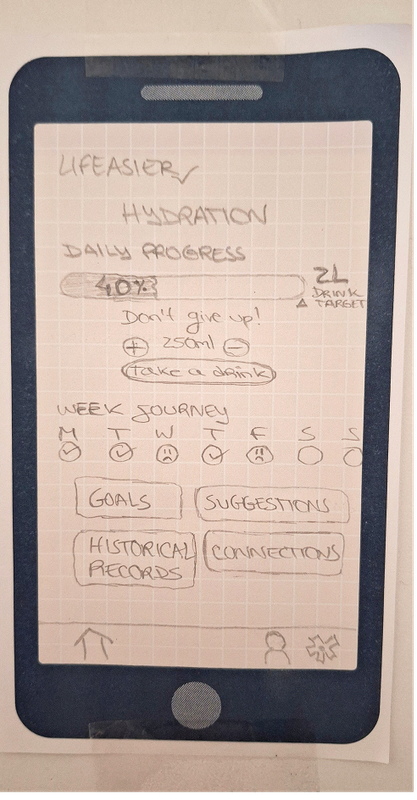 LIFEASIER
HYDRATION
DAILY PROGRESS
40%
2L
DRINK
TARGET
Don't give up!
+ 250ml -
take a drink
WEEK JOURNEY
M T W T F S S
GOALS
SUGGESTIONS
HISTORICAL
RECORDS
CONNECTIONS